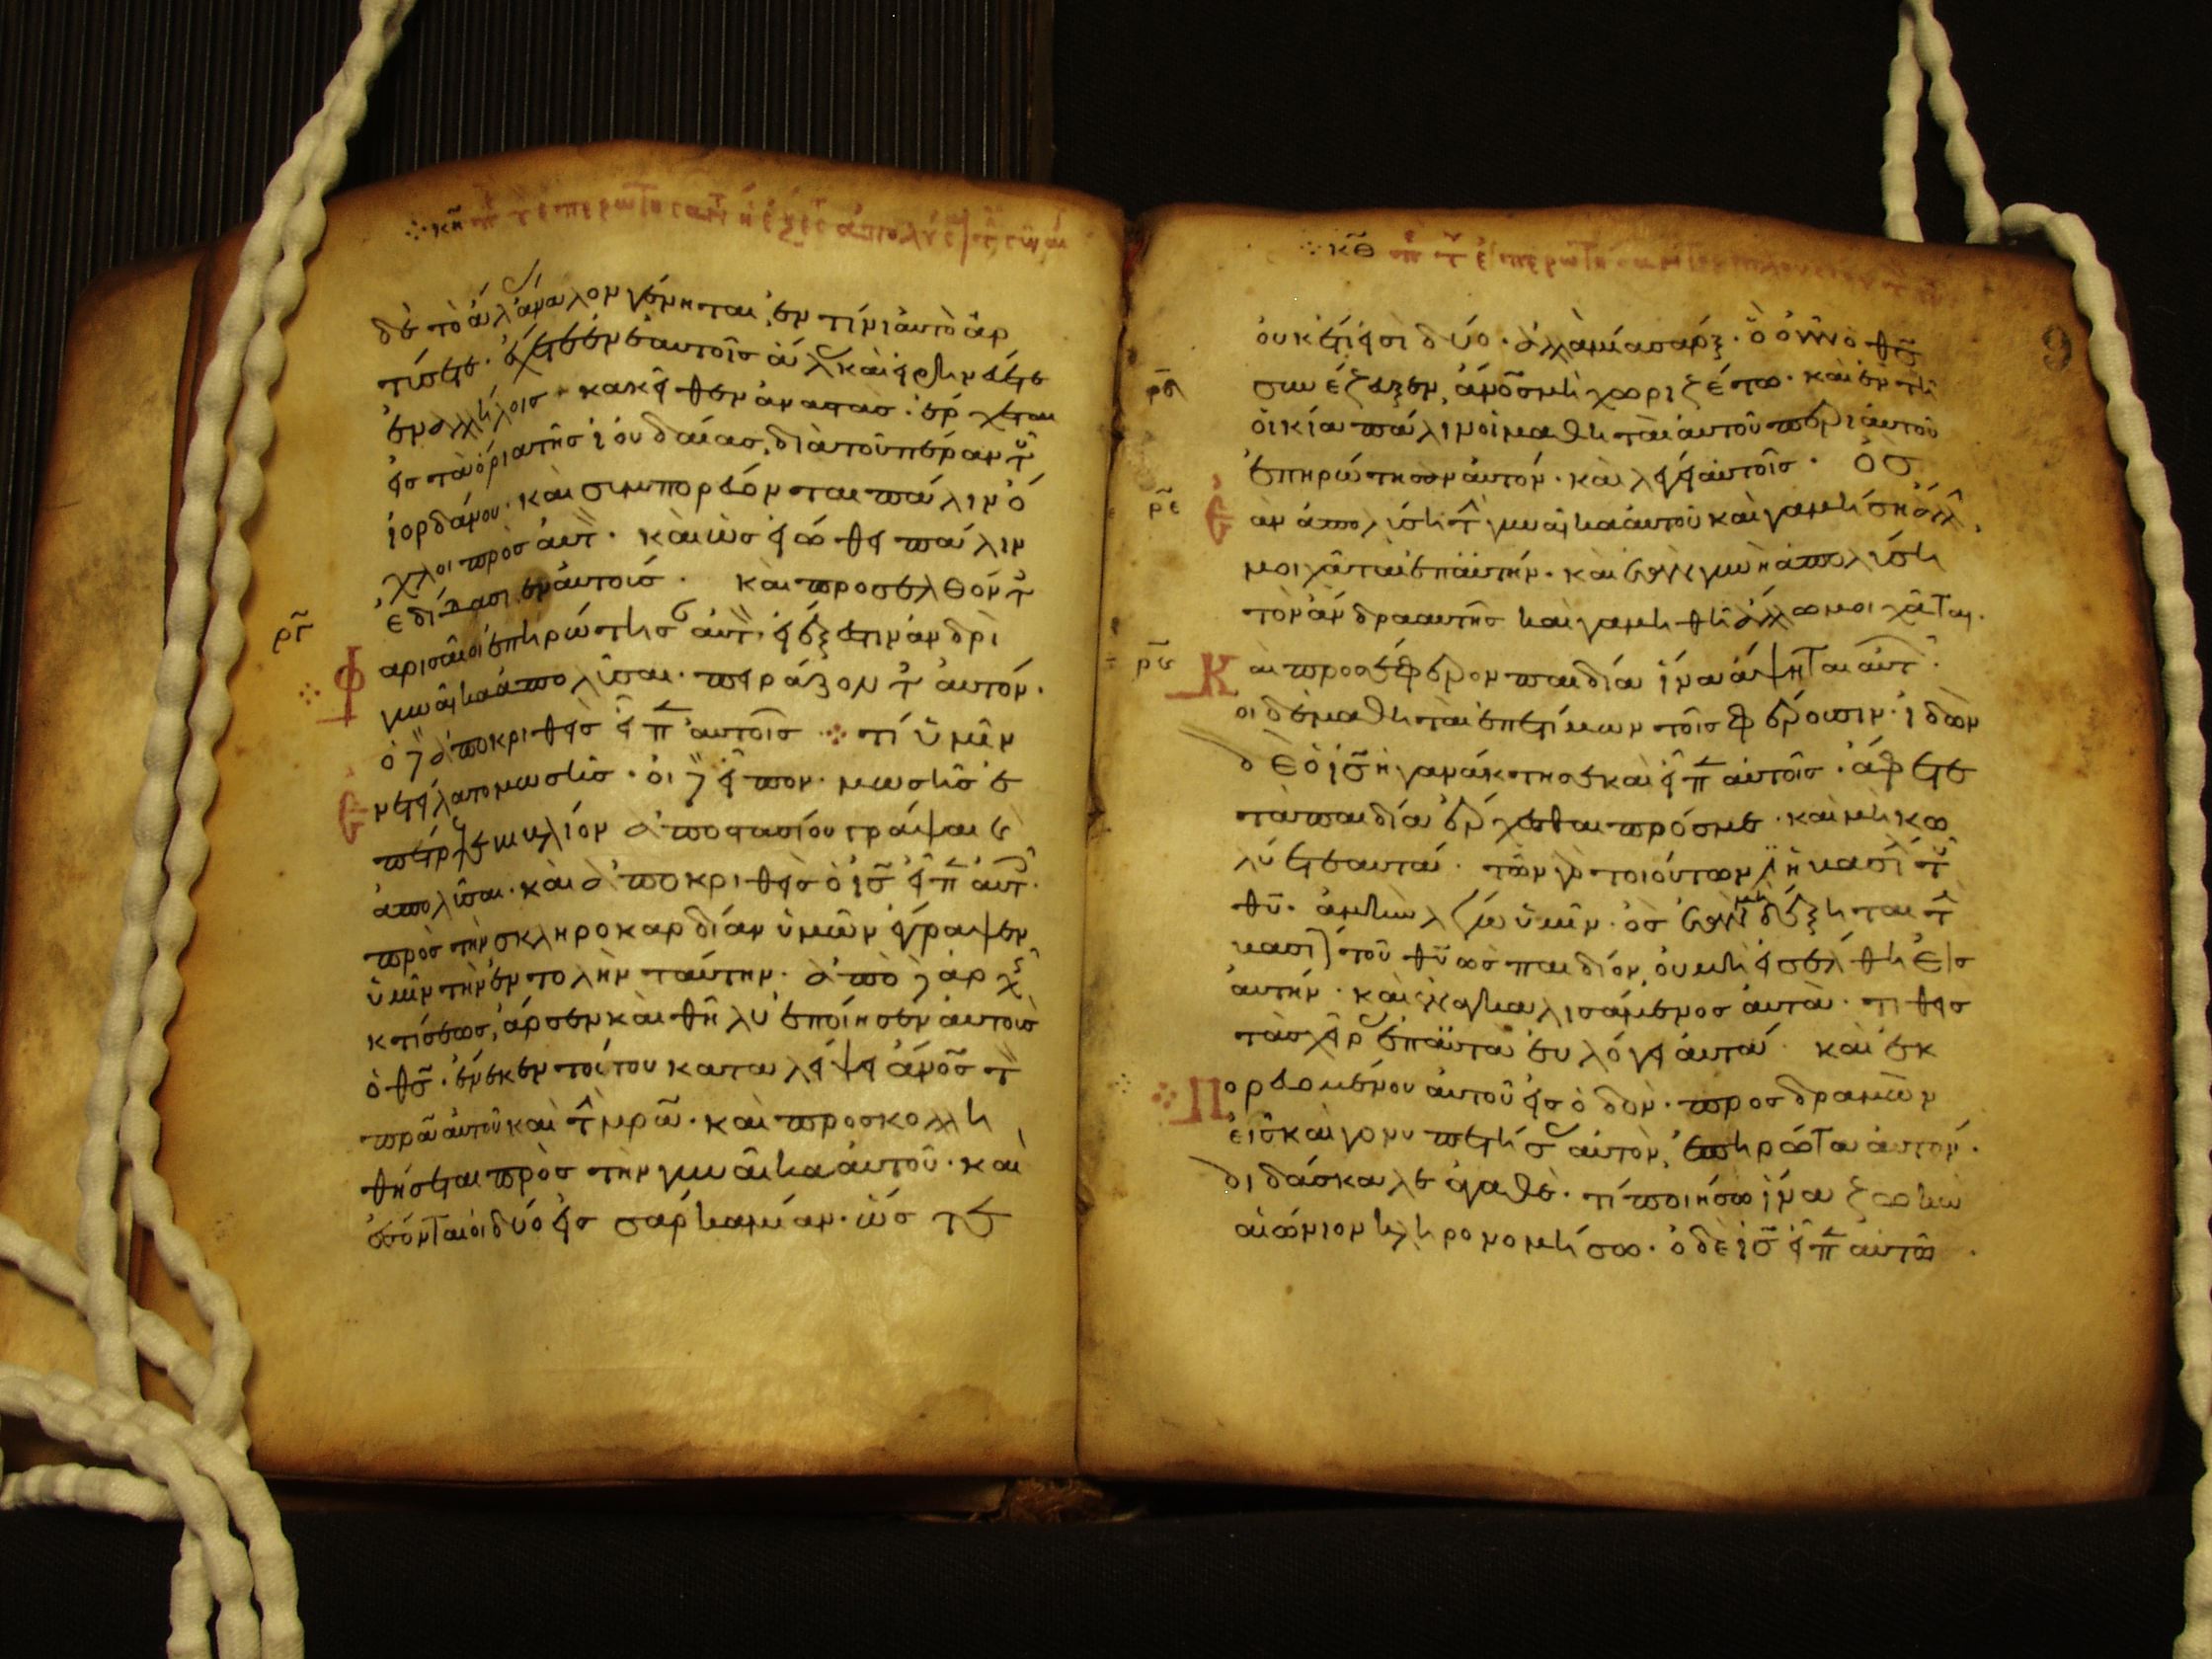 κη π τ επερωτησαντ ει εξες απολυσ τ γυν αι
δὲ τὸ ἅλας ἄναλον γένηται, ἐν τίνι αὐτὸ ἀρ
τύσετε· ἔχετε ἐν ἑαυτοῖς ἅλας καὶ εἰρηνεύετε
ἐν ἀλλήλοις· κἀκεῖθεν ἀναστὰς ἔρχεται
εἰς τὰ ὅρια τῆς ἰουδαίας, διὰ τοῦ πέραν τοῦ
ἰορδάνου· καὶ συμπορεύονται πάλιν ὄ
χλοι πρὸς αὐτ· καὶ ὡς εἰώθει πάλιν
ἐδίδασκεν αὐτοὺς· καὶ προσελθόντ
ργ
Φαρισαῖοι ἐπηρώτησ αὐτ· εἰ ἔξεστιν ἀνδρὶ
γυναῖκα ἀπολῦσαι· πειράζοντ αὐτόν·
ὁ δὲ ἀποκριθεὶς εἶπ αὐτοῖς· τί ὑμῖν
Ἐνετείλατο μωσῆς· οἱ δὲ εἶπον· μωσῆς ἐ
πέτρεψε βιβλίον ἀποστασίου γράψαι κ
ἀπολῦσαι· καὶ ἀποκριθεὶς ὁ ις εἶπ αὐτ·
πρὸς τὴν σκληροκαρδίαν ὑμῶν ἔγραψεν
ὑμῖν τὴν ἐντολὴν ταύτην· ἀπὸ δὲ ἀρχῆς
κτίσεως, ἄρσεν καὶ θῆλυ ἐποίησεν αὐτοὺς
ὁ θς· ἕνεκεν τούτου καταλείψει ἄνος τ
πρα αὐτοῦ καὶ τ μρα· καὶ προσκολλη
θήσεται πρὸς τὴν γυναῖκα αὐτοῦ· καὶ
ἔσονται οἱ δύο εἰς σάρκα μίαν· ὥστε
κθ π τ επερωτησαντ πλουσιου
9
οὐκέτι εἰσὶ δύο· ἀλλὰ μία σάρξ· ὃ οὖν ὁ θς
ρδ
συνέζευξεν, ἄνος μὴ χωριζέτω· καὶ ἐν τῇ
οἰκία πάλιν οἱ μαθηταὶ αὐτοῦ περὶ αὐτοῦ
ἐπηρώτησαν αὐτόν· καὶ λέγει αὐτοῖς· Ὃς
ρε
Ἐὰν ἀπολύσῃ τ γυναῖκα αὐτοῦ καὶ γαμήση ἄλλ,
μοιχᾶται ἐπαὐτήν· καὶ ἐὰν γυνὴ ἀπολύσῃ
τὸν ἄνδρα αὐτῆς καὶ γαμηθῇ ἄλλω μοιχᾶται·
ρς
Καὶ προσέφερον παιδία ἵνα ἅψηται αὐτ·
οἱ δὲ μαθηταὶ ἐπετίμων τοῖς φέρουσιν· ἰδὼν
δὲ ὁ ις ἠγανάκτησε καὶ εἶπ αὐτοῖς· ἄφετε
τὰ παιδία ἔρχεσθαι πρός με· καὶ μὴ κω
λύετε αὐτά· τῶν γὰρ τοιούτων ἐστὶν ἡ βασι τ
θυ· ἀμὴν λέγω ὑμῖν· ὃς ἐὰν μὴ δέξηται τ
βασι τοῦ θυ ὡς παιδίον, οὐ μὴ εἰσέλθη εἰς
αὐτήν· καὶ ἐναγκαλισάμενος αὐτὰ· τιθεὶς
τὰς χεῖρ ἐπαὐτὰ εὐλόγει αὐτά· καὶ ἐκ
Πορευομένου αὐτοῦ εἰς ὁδὸν· προσδραμὼν
εἷς καὶ γονυπετήσ αὐτὸν, ἐπηρώτα αὐτόν·
διδάσκαλε ἀγαθὲ· τί ποιήσω ἵνα ζωὴν
αἰώνιον κληρονομήσω· ὁ δὲ ις εἶπ αὐτῶ·